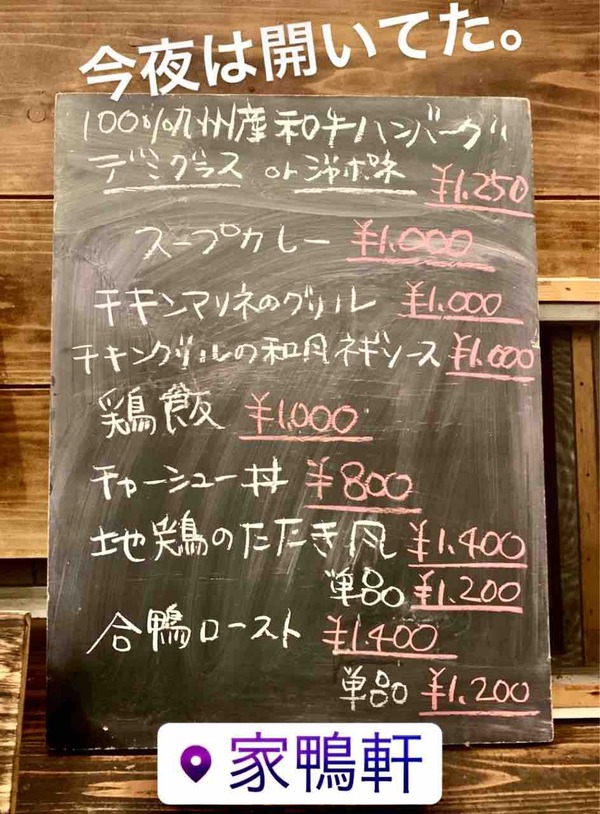 今夜は開いてた。
100%九州産和牛ハンバーグ
デミグラス or ジャポ味 ¥1,250
スープカレー ¥1,000
チキンマリネのグリル ¥1,000
チキングリルの和風ネギソース ¥1,000
鶏飯 ¥1,000
チャーシュー丼 ¥800
地鶏のたたき風 ¥1,400
単品 ¥1,200
合鴨ロースト ¥1,400
単品 ¥1,200
家鴨軒